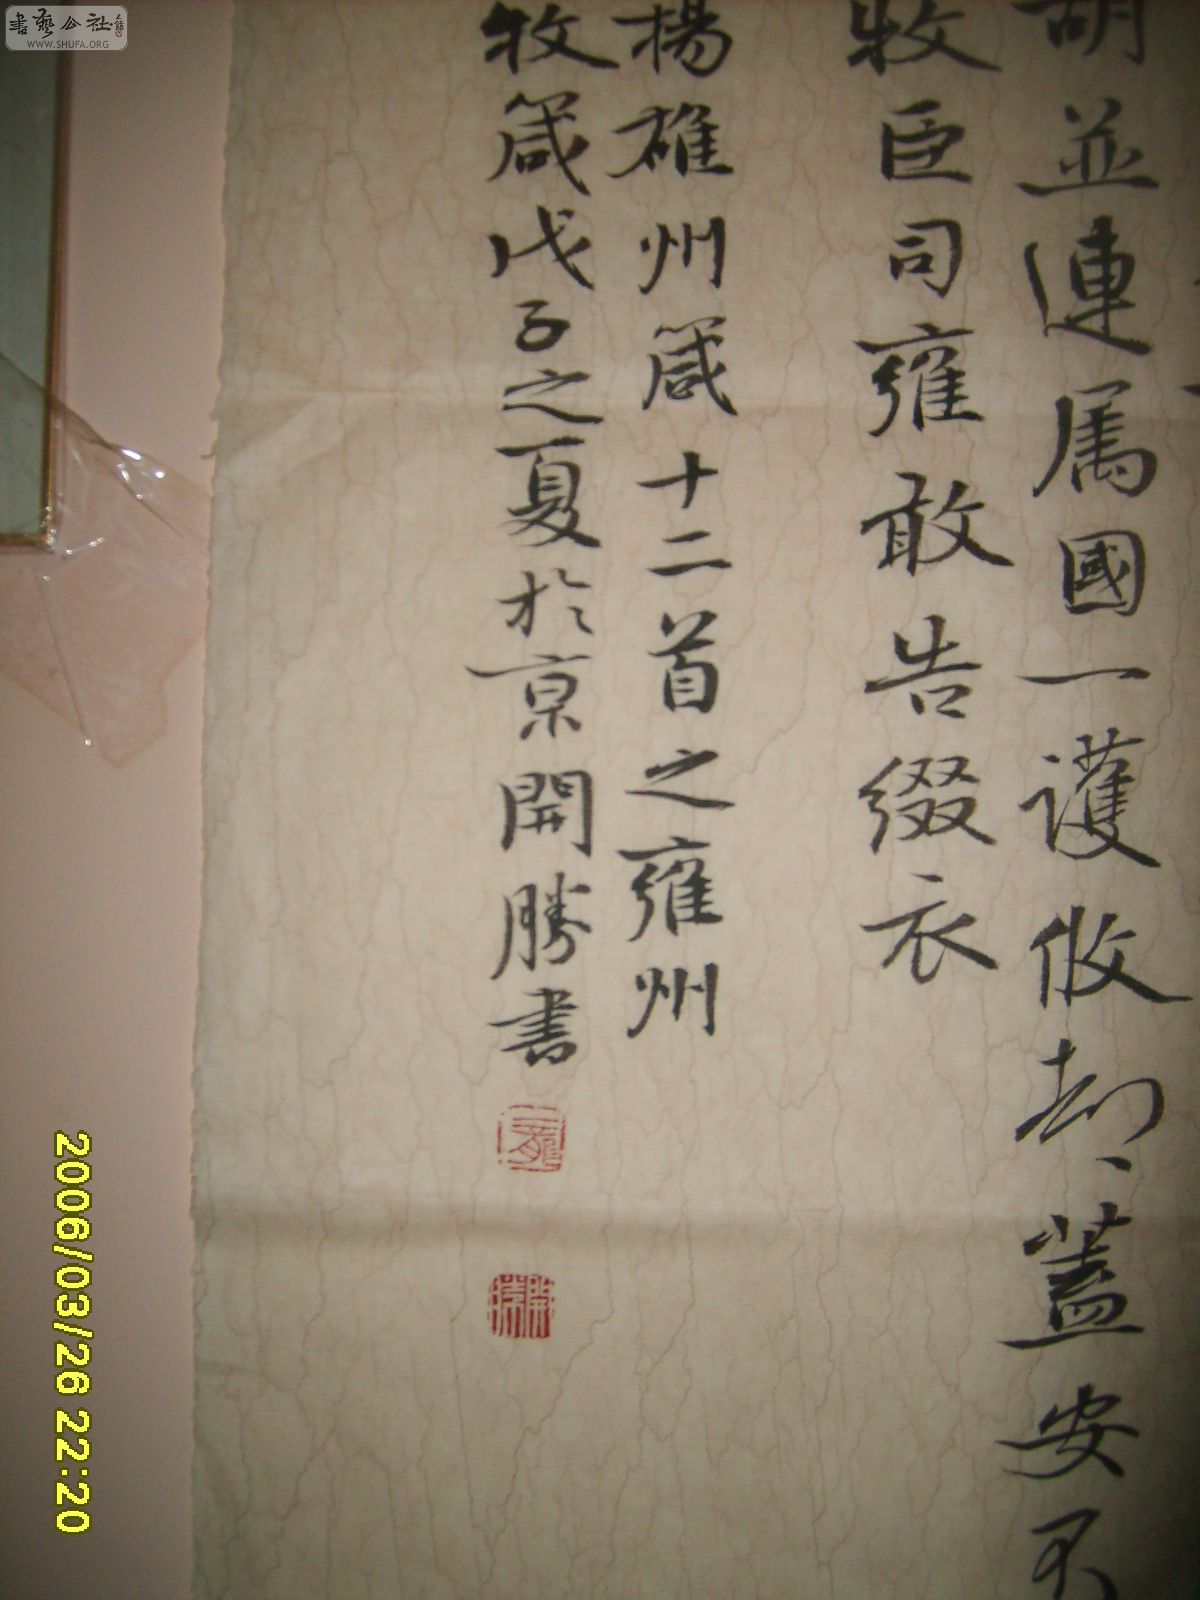 胡並連属國一護攸都蓋安不
牧臣司雍敢告綴衣
揚雄州箴十二首之雍州
牧箴戊子之夏於京開勝書
書藝公社
WWW.SHUFA.ORG
2006/03/26 22:20